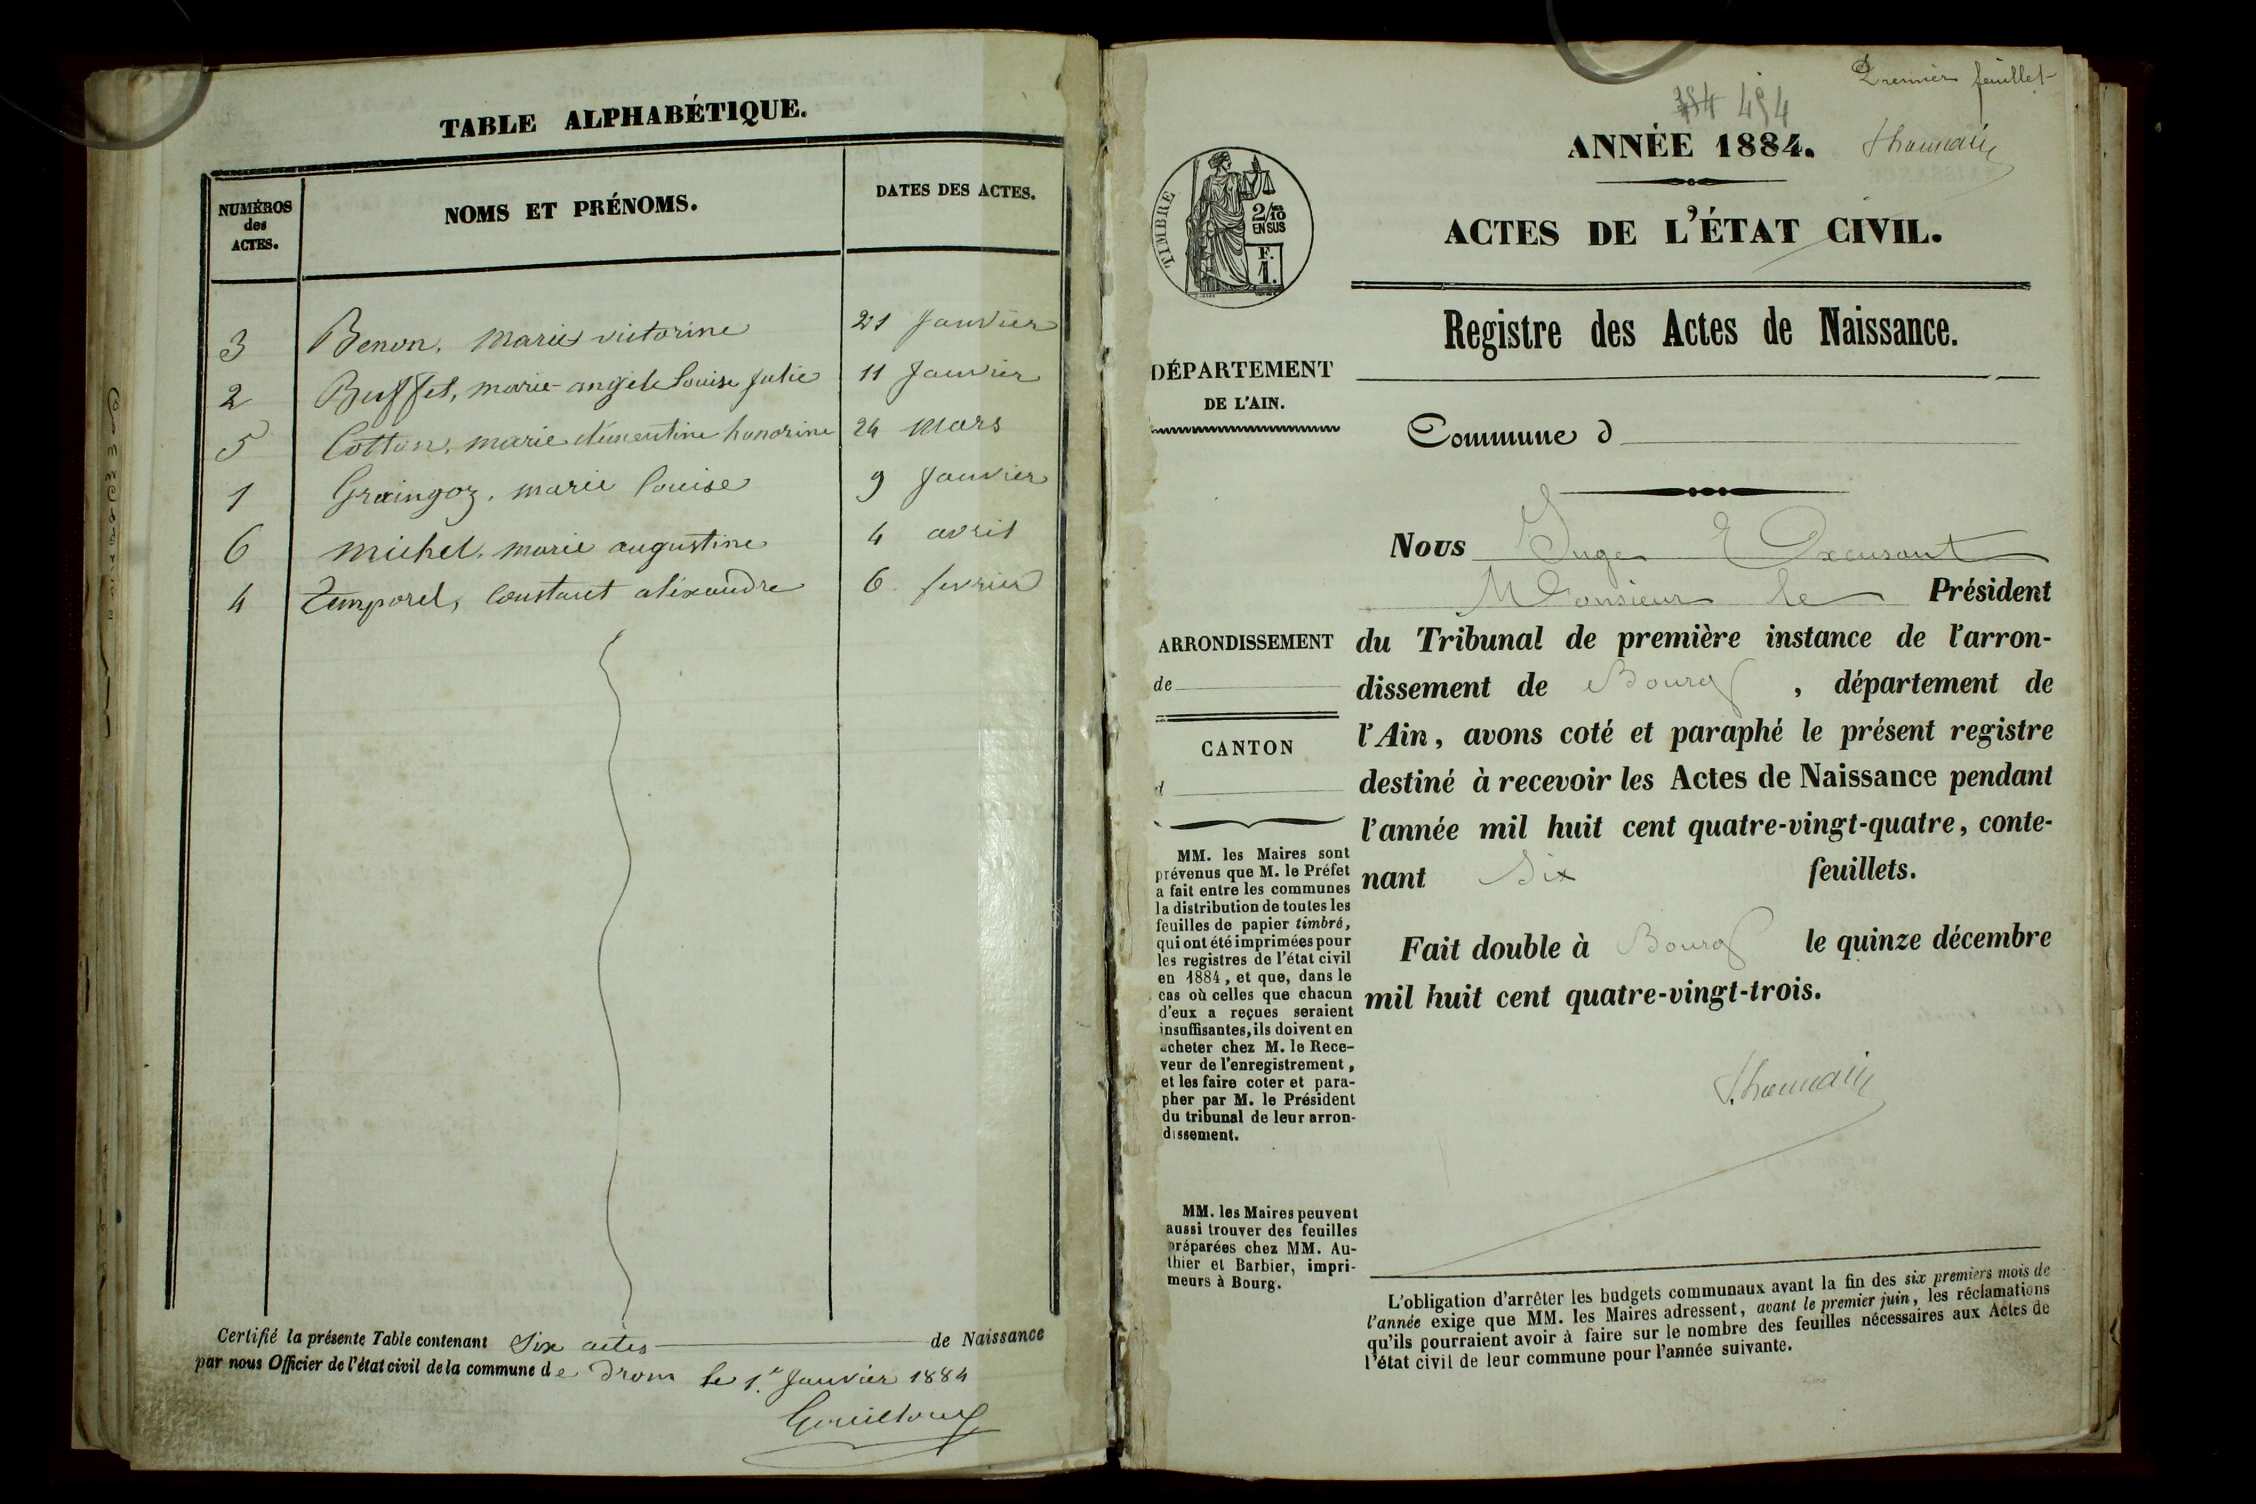 TABLE ALPHABÉTIQUE.
NUMÉROS
des
ACTES.
NOMS ET PRÉNOMS.
DATES DES ACTES.
3 Benon, Marie victorine 21 Janvier
2 Buffet, marie-angèle Louise Julie 11 Janvier
5 Cotton, marie clémentine honorine 24 Mars
1 Graingoz, marie Louise 9 Janvier
6 michel, marie augustine 4 avril
4 Temporel, Constant aléxandre 6 fevrier
Certifié la présente Table contenant Six actes de Naissance
par nous Officier de l'état civil de la commune de Drom le 1.er Janvier 1884
Premier feuillet
494
ANNÉE 1884.
ACTES DE L'ÉTAT CIVIL.
TIMBRE
2/10es
EN SUS
F.
1.
Registre des Actes de Naissance.
DÉPARTEMENT
DE L'AIN.
Commune d
Nous Juge
Monsieur le Président
du Tribunal de première instance de l'arron-
dissement de Bourg, département de
l'Ain, avons coté et paraphé le présent registre
destiné à recevoir les Actes de Naissance pendant
l'année mil huit cent quatre-vingt-quatre, conte-
nant Six feuillets.
Fait double à Bourg le quinze décembre
mil huit cent quatre-vingt-trois.
ARRONDISSEMENT
de
CANTON
d
MM. les Maires sont
prévenus que M. le Préfet
a fait entre les communes
la distribution de toutes les
feuilles de papier timbré,
qui ont été imprimées pour
les registres de l'état civil
en 1884, et que, dans le
cas où celles que chacun
d'eux a reçues seraient
insuffisantes, ils doivent en
acheter chez M. le Rece-
veur de l'enregistrement,
et les faire coter et para-
pher par M. le Président
du tribunal de leur arron-
dissement.
MM. les Maires peuvent
aussi trouver des feuilles
préparées chez MM. Au-
thier et Barbier, impri-
meurs à Bourg.
L'obligation d'arrêter les budgets communaux avant la fin des six premiers mois de
l'année exige que MM. les Maires adressent, avant le premier juin, les réclamations
qu'ils pourraient avoir à faire sur le nombre des feuilles nécessaires aux Actes de
l'état civil de leur commune pour l'année suivante.